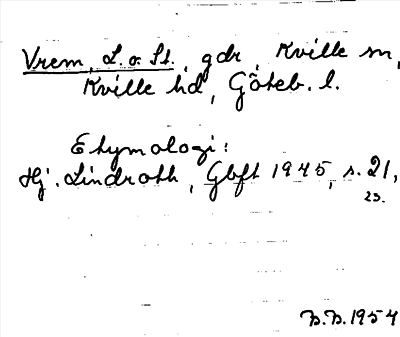 Vrem, L. o. St., gdr, Kville sn,
Kville hd, Göteb. l.
Etymologi:
Hj. Lindroth, Gbft 1945, s. 21,
23.
B.B. 1954